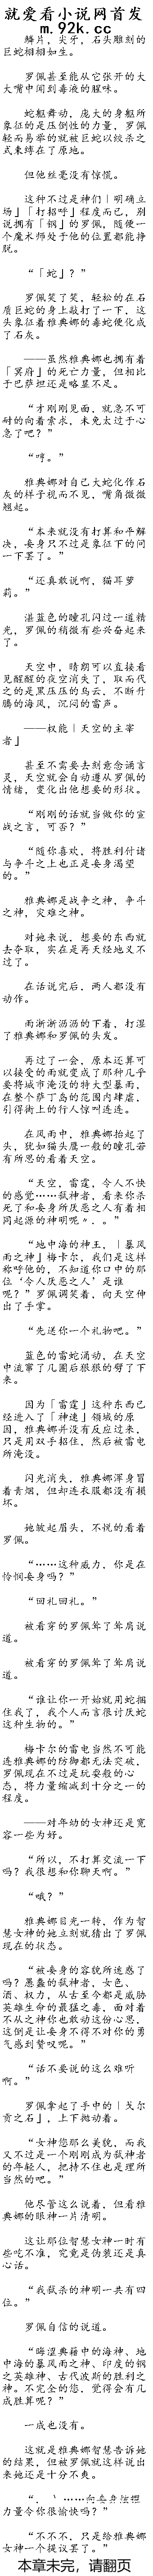 就爱看小说网首发
m.92k.cc
鳞片，尖牙，石头雕刻的
巨蛇栩栩如生。
罗佩甚至能从它张开的大
大嘴中闻到毒液的腥味。
蛇躯舞动，庞大的身躯所
象征的是压倒性的力量，罗佩
轻而易举的就被巨蛇以绞杀之
式束缚在了原地。
但他丝毫没有惊慌。
这种不过是神们「明确立
场」「打招呼」程度而已，别
说拥有「钢」的罗佩，随便一
个魔术师处于他的位置都能挣
脱。
“「蛇」？”
罗佩笑了笑，轻松的在石
质巨蛇的身上敲打了一下，这
头象征着雅典娜的毒蛇便化成
了石灰。
——虽然雅典娜也拥有着
「冥府」的死亡力量，但相比
于巴萨坦还是略显不足。
“才刚刚见面，就急不可
耐的向着索求，未免太过于心
急了吧？”
“哼。”
雅典娜对自己大蛇化作石
灰的样子视而不见，嘴角微微
翘起。
“本来就没有打算和平解
决，妾身只不过是象征下的问
一下罢了。”
“还真敢说啊，猫耳萝
莉。”
湛蓝色的瞳孔闪过一道精
光，罗佩的稍微有些兴奋起来
了。
天空中，晴朗可以直接看
见醒醒的夜空消失了，取而代
之的是黑压压的乌云，不断升
腾的海风，沉闷的雷声。
——权能「天空的主宰
者」
甚至不需要去刻意念诵言
灵，天空就会自动遵从罗佩的
情绪，变化出他想要的形状。
“刚刚的话就当做你的宣
战之言，可否？”
“随你喜欢，将胜利付诸
与争斗之上也正是妾身渴望
的。”
雅典娜是战争之神，争斗
之神，灾难之神。
对她来说，想要的东西就
去夺取，实在是再天经地义不
过了。
在话说完后，两人都没有
动作。
雨淅淅沥沥的下着，打湿
了雅典娜和罗佩的头发。
再过了一会，原本还算可
以接受的雨就变成了那种几乎
要将城市淹没的特大型暴雨，
在整个萨丁岛的范围内肆虐，
引得街上的行人惊叫连连。
在风雨中，雅典娜抬起了
头，犹如猫头鹰一般的瞳孔若
有所思的看着天空。
“天空，雷霆，令人不快
的感觉……弑神者，看来你杀
死了和妾身所厌恶之人有着相
同起源的神明呢〃．。”
“地中海的神王，「暴风
雨之神」梅卡尔，我们是这样
称呼他的，不知道你口中的那
位‘令人厌恶之人’是谁
呢？”罗佩调笑着，向天空伸
出了手掌。
“先送你一个礼物吧。”
蓝色的雷蛇涌动，在天空
中流窜了几圈后狠狠的劈了下
来。
因为「雷霆」这种东西已
经进入了「神速」领域的原
因，雅典娜并没有反应过来，
只是用双手招住，然后被雷电
所淹没。
闪光消失，雅典娜浑身冒
着青烟，但却连衣服都没有损
坏。
她皱起眉头，不悦的看着
罗佩。
“……这种威力，你是在
怜悯妾身吗？”
“回礼回礼。”
被看穿的罗佩耸了耸肩说
道。
被看穿的罗佩耸了耸肩说
道。
“谁让你一开始就用蛇捆
住我了，我个人而言很讨厌蛇
这种生物的。”
梅卡尔的雷电当然不可能
连雅典娜的防御都无法突破，
罗佩现在不过是玩耍般的心
态，将力量缩减到十分之一的
程度。
——对年幼的女神还是宽
容一些为好。
“所以，不打算交流一下
吗？我很想和你聊天啊。”
“哦？”
雅典娜目光一转，作为智
慧女神的她立刻就猜出了罗佩
现在的状态。
“被妾身的容貌所迷惑了
吗？愚蠢的弑神者，女色、
酒、权力，从古至今都是威胁
英雄生命的最猛之毒，面对着
不从之神你也敢动这份心思，
这倒是让妾身不得不对你的勇
气感到赞叹呢。”
“话不要说的这么难听
啊。”
罗佩拿起了手中的「戈尔
贡之石」，上下抛动着。
“女神您那么美貌，而我
又不过是一个刚刚成为弑神者
的年轻人，把持不住也是理所
当然的吧。”
他尽管这么说着，但看雅
典娜的眼神一片清明。
这让那位智慧女神一时有
些吃不准，究竟是伪装还是真
心话。
“我弑杀的神明一共有四
位。”
罗佩自信的说道。
“晦涩典籍中的海神、地
中海的暴风雨之神、印度的钢
之英雄神、古代波斯的胜利之
神。不完全的您，觉得会有几
成胜算呢？”
一成也没有。
这就是雅典娜智慧告诉她
的结果，但被罗佩就这样说出
来她还是十分不爽。
“．｀）……向妾身炫耀
力量令你很愉快吗？”
“不不不，只是给雅典娜
女神一个提议罢了。”
本章未完，请翻页